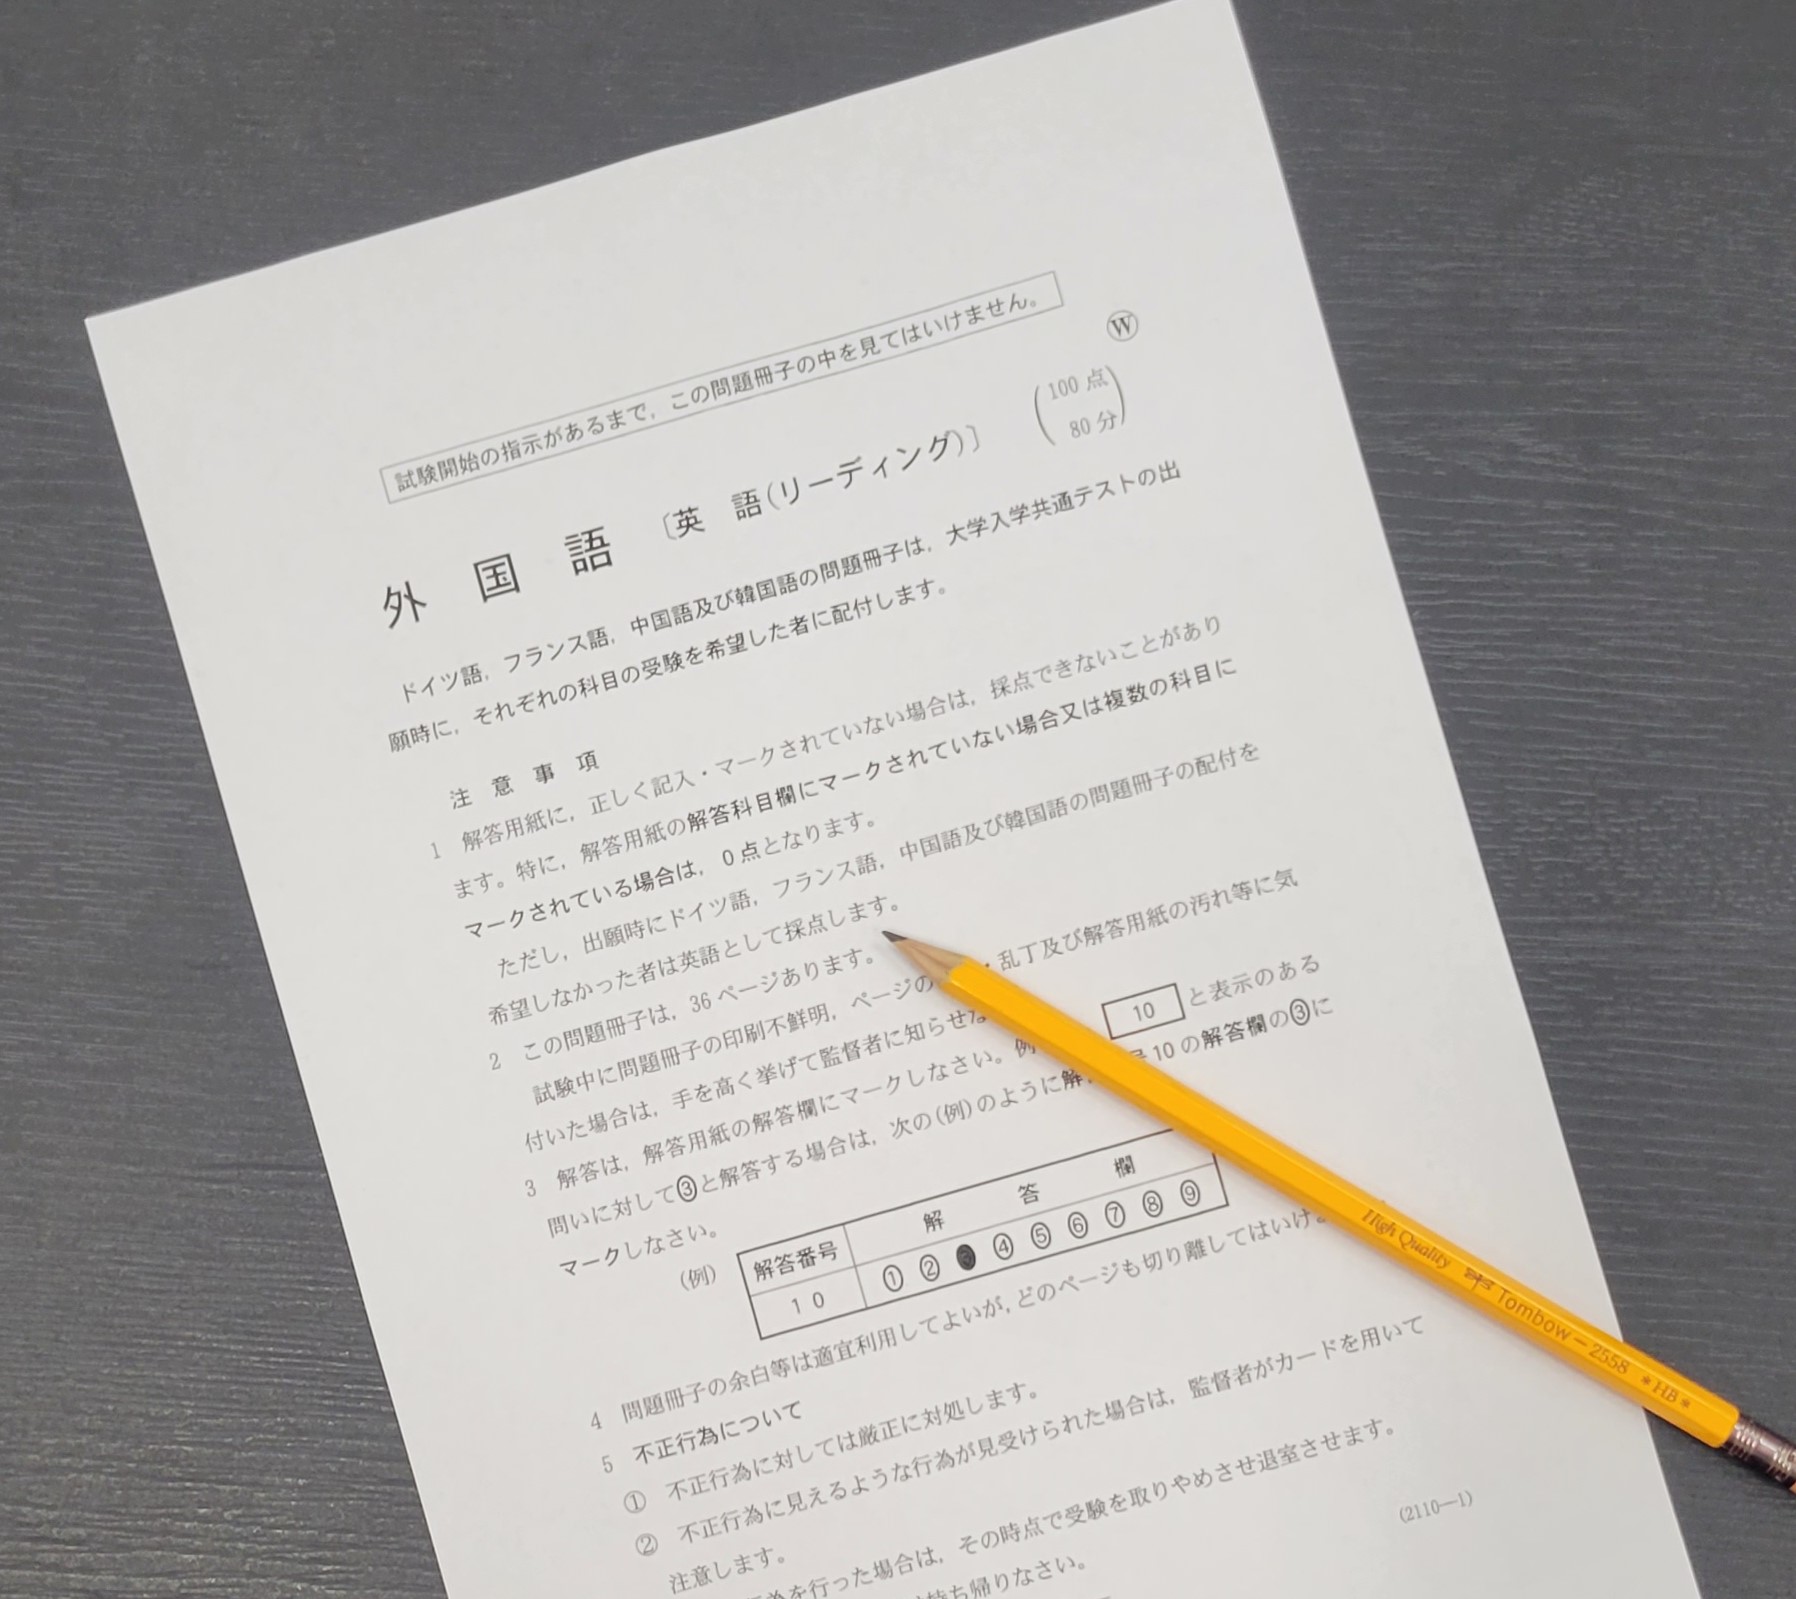 試験開始の指示があるまで，この問題冊子の中を見てはいけません。
Ⓦ
外 国 語 〔英 語(リーディング)〕 (100点 80分)
ドイツ語，フランス語，中国語及び韓国語の問題冊子は，大学入学共通テストの出
願時に，それぞれの科目の受験を希望した者に配付します。
注 意 事 項
1 解答用紙に，正しく記入・マークされていない場合は，採点できないことがあり
ます。特に，解答用紙の解答科目欄にマークされていない場合又は複数の科目に
マークされている場合は，0点となります。
ただし，出願時にドイツ語，フランス語，中国語及び韓国語の問題冊子の配付を
希望しなかった者は英語として採点します。
2 この問題冊子は，36ページあります。
試験中に問題冊子の印刷不鮮明，ページの・乱丁及び解答用紙の汚れ等に気
付いた場合は，手を高く挙げて監督者に知らせ
3 解答は，解答用紙の解答欄にマークしなさい。例 10 と表示のある
問いに対して③と解答する場合は，次の(例)のように解 10の解答欄の③に
マークしなさい。
(例)
解答番号 解 答 欄
10 ① ② ③ ④ ⑤ ⑥ ⑦ ⑧ ⑨
4 問題冊子の余白等は適宜利用してよいが，どのページも切り離してはいけ
5 不正行為について
① 不正行為に対しては厳正に対処します。
② 不正行為に見えるような行為が見受けられた場合は，監督者がカードを用いて
注意します。
為を行った場合は，その時点で受験を取りやめさせ退室させます。
持ち帰りなさい。
(2110—1)
High Quality Tombow — 2558 *HB*